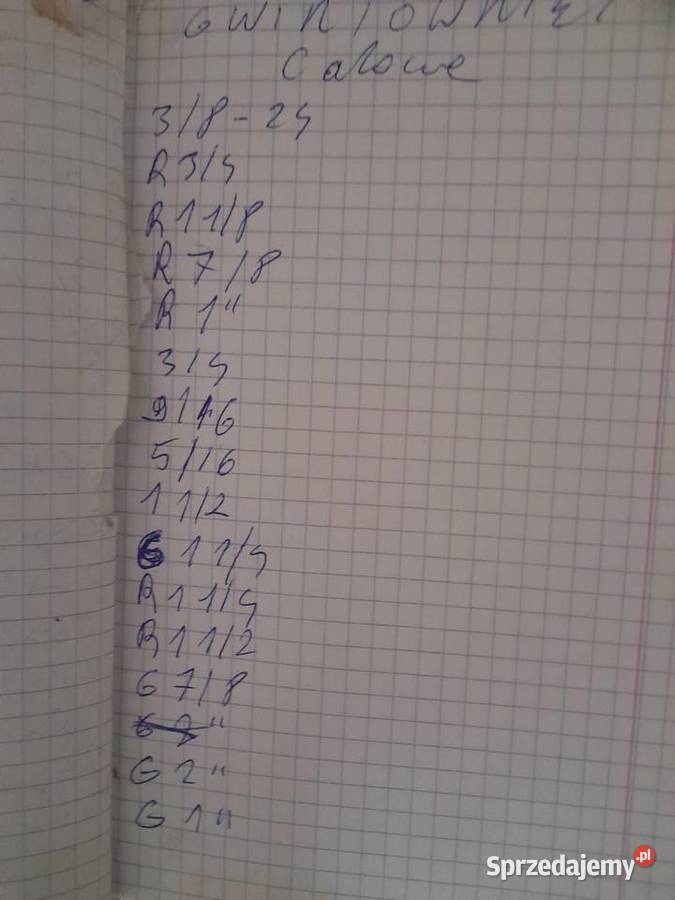 GWINTOWNIKI
Calowe
3/8-24
R 3/4
R 1 1/8
R 7/8
R 1"
3/4
9/16
5/16
1 1/2
G 1 1/4
R 1 1/4
R 1 1/2
G 7/8
G 2"
G 1"
Sprzedajemy.pl